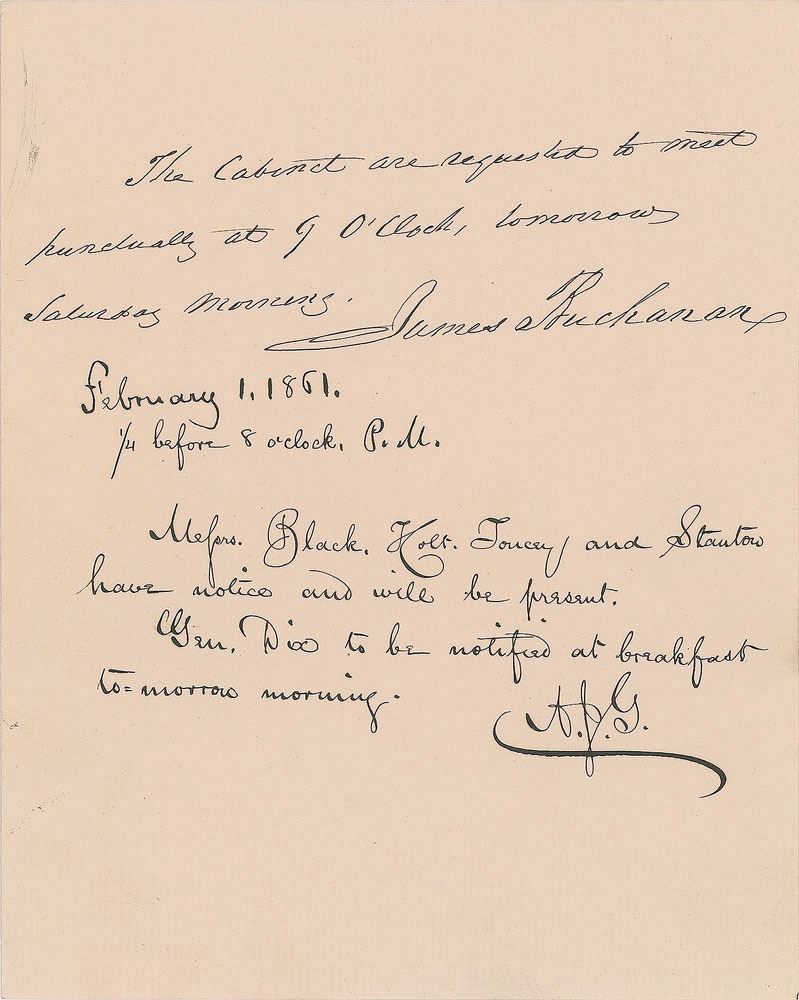 The Cabinet are requested to meet
punctually at 9 O'Clock, tomorrow
Saturday morning.
James Buchanan
February 1, 1861.
1/4 before 8 o'clock, P.M.
Messrs. Black, Holt. Toucey and Stanton
have notice and will be present.
Gen. Dix to be notified at breakfast
to=morrow morning.
A.J.G.